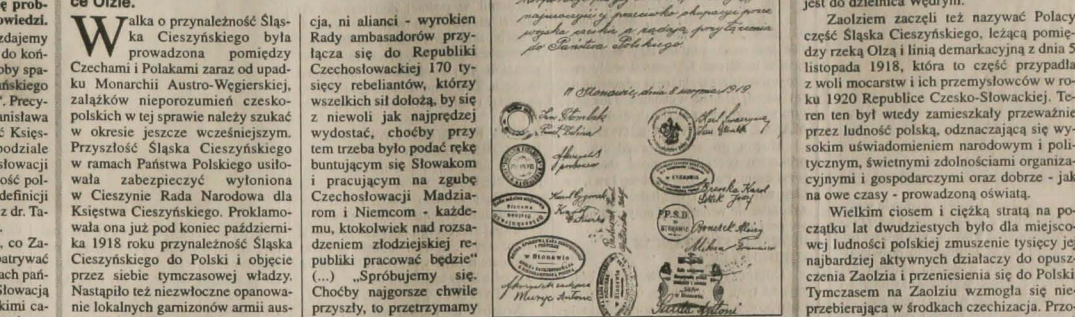 ę prob-
owiedzi.
zdajemy
do koń-
oby spa-
ańskiego
". Precy-
anisława
ć Księs-
podziale
słowacji
ość pol-
definicji
z dr. Ta-
, co Za-
patrywać
ach pań-
Słowacją
kimi ca-
ce Olzie.
Walka o przynależność Śląs-
ka Cieszyńskiego była
prowadzona pomiędzy
Czechami i Polakami zaraz od upad-
ku Monarchii Austro-Węgierskiej,
zalążków nieporozumień czesko-
polskich w tej sprawie należy szukać
w okresie jeszcze wcześniejszym.
Przyszłość Śląska Cieszyńskiego
w ramach Państwa Polskiego usiło-
wała zabezpieczyć wyłoniona
w Cieszynie Rada Narodowa dla
Księstwa Cieszyńskiego. Proklamo-
wała ona już pod koniec październi-
ka 1918 roku przynależność Śląska
Cieszyńskiego do Polski i objęcie
przez siebie tymczasowej władzy.
Nastąpiło też niezwłoczne opanowa-
nie lokalnych garnizonów armii aus-
cja, ni alianci - wyrokien
Rady ambasadorów przy-
łącza się do Republiki
Czechosłowackiej 170 ty-
sięcy rebeliantów, którzy
wszelkich sił dołożą, by się
z niewoli jak najprędzej
wydostać, choćby przy
tem trzeba było podać rękę
buntującym się Słowakom
i pracującym na zgubę
Czechosłowacji Madzia-
rom i Niemcom - każde-
mu, ktokolwiek nad rozsa-
dzeniem złodziejskiej re-
publiki pracować będzie"
(...) „Spróbujemy się.
Choćby najgorsze chwile
przyszły, to przetrzymamy
najuroczyściej przeciwko okupacji przez
wojska czeskie
do Państwa Polskiego.
W Stonawie, dnia 1919
Jan
Paweł
Karol
Jan
Karol
w Stonawie
P.P.S.D.
w
STONAWIE
Józef
Antoni
Antoni
jest do dzielnica Wędryni.
Zaolziem zaczęli też nazywać Polacy
część Śląska Cieszyńskiego, leżącą pomię-
dzy rzeką Olzą i linią demarkacyjną z dnia 5
listopada 1918, która to część przypadła
z woli mocarstw i ich przemysłowców w ro-
ku 1920 Republice Czesko-Słowackiej. Te-
ren ten był wtedy zamieszkały przeważnie
przez ludność polską, odznaczającą się wy-
sokim uświadomieniem narodowym i poli-
tycznym, świetnymi zdolnościami organiza-
cyjnymi i gospodarczymi oraz dobrze - jak
na owe czasy - prowadzoną oświatą.
Wielkim ciosem i ciężką stratą na po-
czątku lat dwudziestych było dla miejsco-
wej ludności polskiej zmuszenie tysięcy jej
najbardziej aktywnych działaczy do opusz-
czenia Zaolzia i przeniesienia się do Polski
Tymczasem na Zaolziu wzmogła się nie-
przebierająca w środkach czechizacja. Przo-